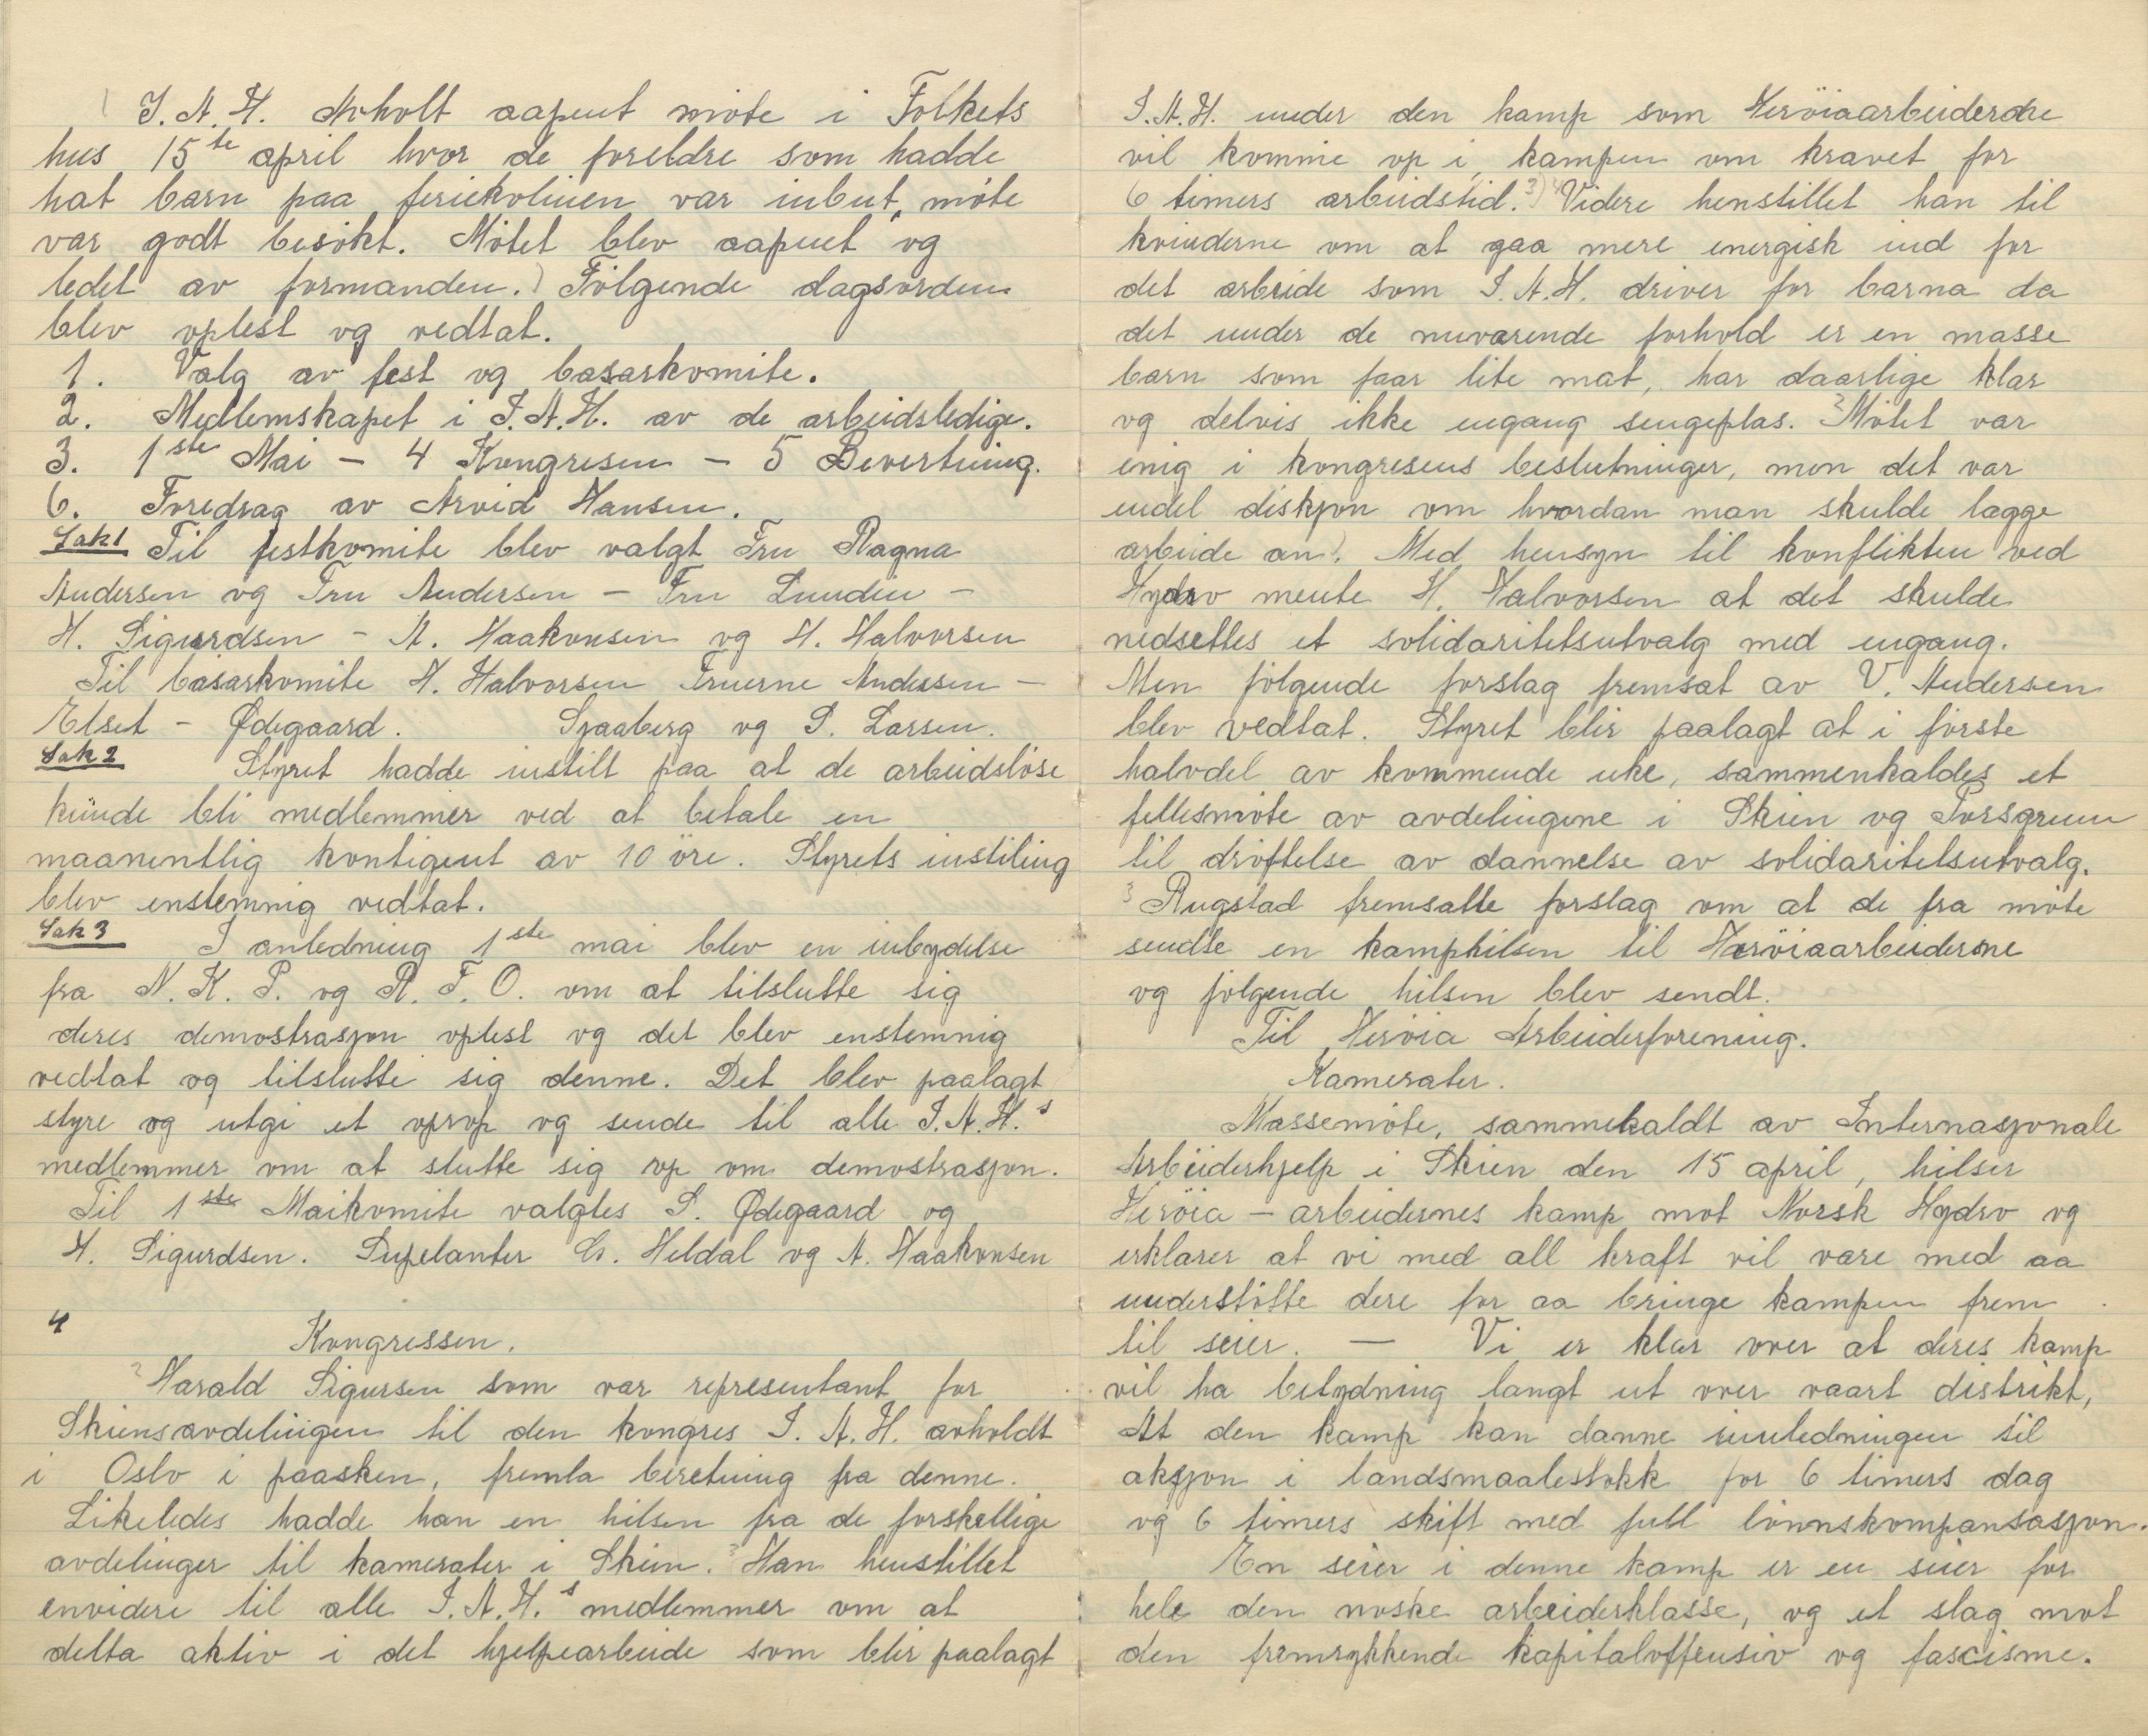 I. A. H. Avholt aapent møte i Folkets
hus 15te april hvor de foreldre som hadde
hat barn paa feriekolinen var inbut, møte
var godt besøkt. Møtet blev aapnet og
ledet av formanden.) Følgende dagsorden
blev oplest og vedtat.
1. Valg av fest og basarkomite.
2. Medlemskapet i I.A.H. av de arbeidsledige.
3. 1ste Mai – 4 Kongresen – 5 Bevertning.
6. Foredrag av Arvid Hansen.
Sak1 Til festkomite blev valgt Fru Ragna
Andersen og Fru Andersen – Fru Lundin –
H. Sigurdsen – A. Haakonsen og H. Halvorsen
Til basarkomite H. Halvorsen Fruerne Andersen –
Elset – Ødegaard. Sjaaberg og S. Larsen.
Sak 2 Styret hadde instilt paa at de arbeidsløse
kunde bli medlemmer ved at betale en
maanentlig kontigent av 10 øre. Styrets instiling
blev enstemnig vedtat.
Sak 3 I anledning 1ste mai blev en inbydelse
fra N. K. P. og R. F. O. om at tilslutte sig
deres demostrasjon oplest og det blev enstemnig
vedtat og tilslutte sig denne. Det blev paalagt
styre og utgi et oprop og sende til alle I.A.H.s
medlemmer om at slutte sig op om demostrasjon.
Til 1ste Maikomite valgtes S. Ødegaard og
H. Sigurdsen. Supelanter G. Heldal og A. Haakonsen
4 Kongressen.
2 Harald Sigursen som var representant for
Skiensavdelingen til den kongres I. A. H. avholdt
i Oslo i paasken, fremla beretning fra denne.
Likeledes hadde han en hilsen fra de forskellige
avdelinger til kamerater i Skien. 3 Han henstillet
envidere til alle I.A.H.s medlemmer om at
delta aktiv i det hjelpearbeide som blir paalagt
I.A.H. under den kamp som Herøiaarbeiderdre
vil komme op i, kampen om kravet for
6 timers arbeidstid. 3) Videre henstillet han til
kvinderne om at gaa mere energisk ind for
det arbeide som I.A.H. driver for barna da
det under de nuværende forhold er en masse
barn som faar lite mat, har daarlige klær
og delvis ikke engang sengeplas. 2 Møtet var
enig i kongresens beslutninger, men det var
endel diskjon om hvordan man skulde lægge
arbeide an). Med hensyn til konflikten ved
Hydro mente H. Halvorsen at det skulde
nedsettes et solidaritetsutvalg med engang.
Men følgende forslag fremsat av V. Andersen
blev vedtat. Styret blir paalagt at i første
halvdel av kommende uke, sammenkaldes et
fellesmøte av avdelingene i Skien og Porsgrunn
til drøftelse av dannelse av solidaritetsutvalg.
3 Rugstad fremsatte forslag om at de fra møte
sendte en kamphilsen til Herøiaarbeiderne
og følgende hilsen blev sendt.
Til Herøia Arbeiderforening.
Kamerater.
Massemøte, sammekaldt av Internasjonale
Arbeiderhjelp i Skien den 15 april, hilser
Herøia – arbeidernes kamp mot Norsk Hydro og
erklærer at vi med all kraft vil være med aa
understøtte dere for aa bringe kampen frem
til seier. — Vi er klar over at deres kamp
vil ha betydning langt ut over vaart distrikt,
At den kamp kan danne innledningen til
aksjon i landsmaalestokk for 6 timers dag
og 6 timers skift med full lønnskompansasjon.
En seier i denne kamp er en seier for
hele den noske arbeiderklasse, og et slag mot
den fremrykkende kapitaloffensiv og fascisme.